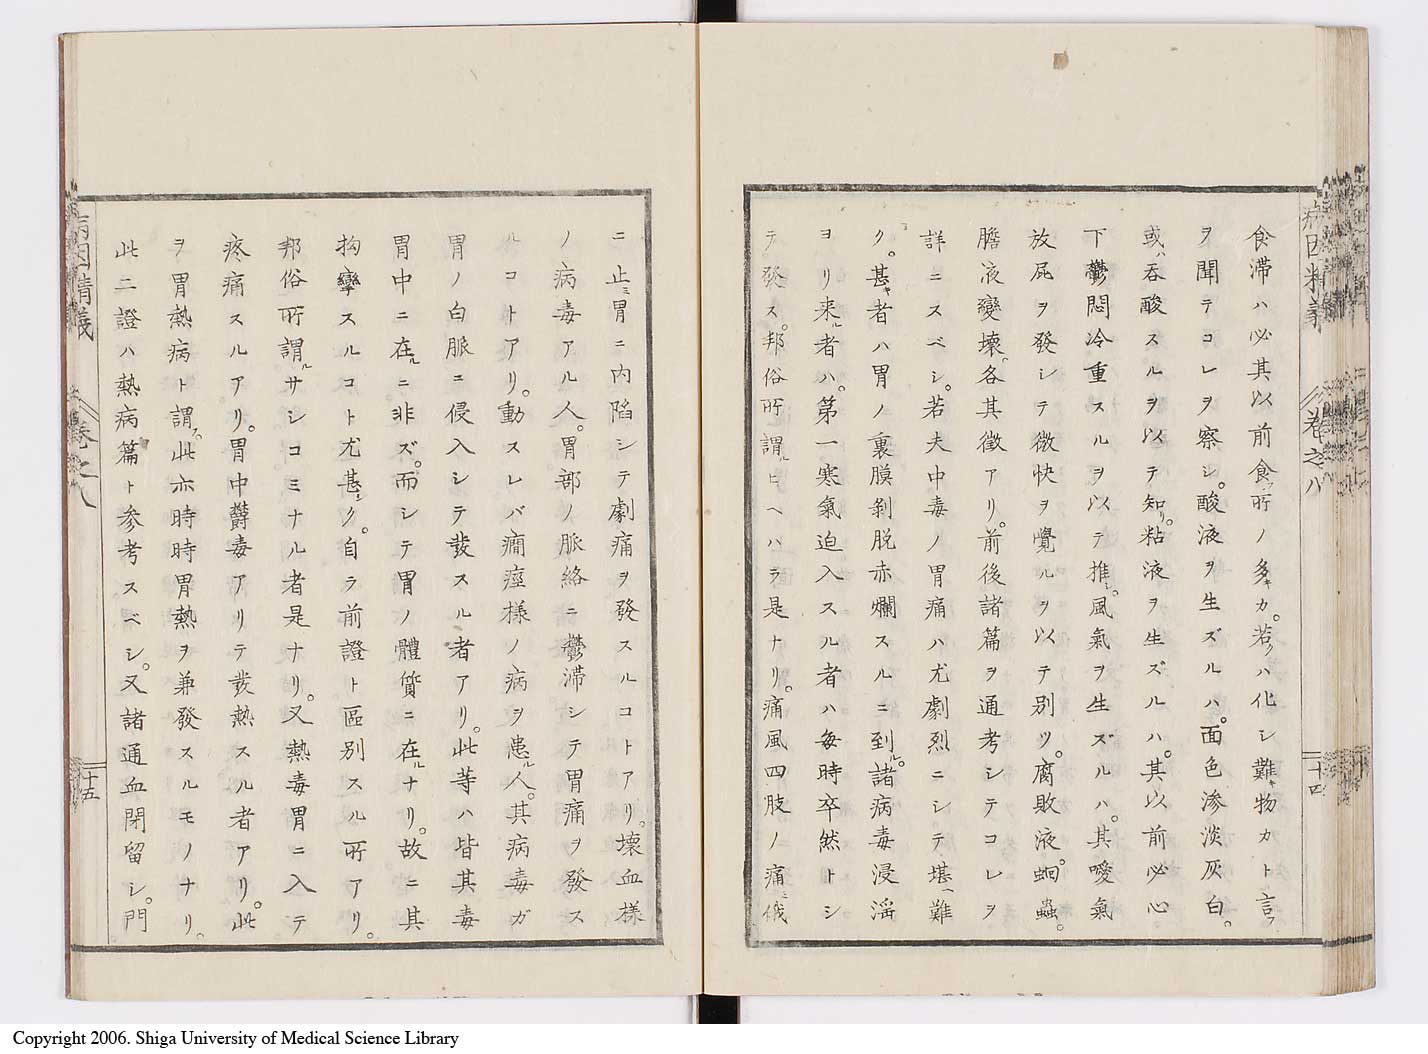 病因精義 卷之八 十四
食滞ハ必其以前食フ所ノ多キカ。若クハ化シ難キ物カト言フ
ヲ聞テコレヲ察シ。酸液ヲ生ズルハ。面色渗淡灰白。
或ハ吞酸スルヲ以テ知リ。粘液ヲ生ズルハ。其以前必心
下鬱悶冷重スルヲ以テ推シ。風氣ヲ生ズルハ。其噯氣
放屁ヲ發シテ微快ヲ覺ルヲ以テ別ツ。腐敗液。蛔蟲。
膽液變壞。各其徴アリ。前後諸篇ヲ通考シテコレヲ
詳ニスベシ。若夫中毒ノ胃痛ハ尤劇烈ニシテ堪ヘ難
ク。甚キ者ハ胃ノ裏膜剝脱赤爛スルニ到ル。諸病毒浸淫
ヨリ来ル者ハ。第一寒氣迫入スル者ハ毎時卒然トシ
テ發ス。邦俗所謂ルヒヘハラ是ナリ。痛風四肢ノ痛ミ俄
ニ止ミ胃ニ内陷シテ劇痛ヲ發スルコトアリ。壞血樣
ノ病毒アル人。胃部ノ脈絡ニ鬱滞シテ胃痛ヲ發ス
ルコトアリ。動スレバ癇痙樣ノ病ヲ患ル人。其病毒ガ
胃ノ白脈ニ侵入シテ發スル者アリ。此等ハ皆其毒
胃中ニ在ルニ非ズ。而シテ胃ノ體質ニ在ルナリ。故ニ其
拘攣スルコト尤甚シク。自ラ前證ト區別スル所アリ。
邦俗所謂ルサシコミナル者是ナリ。又熱毒胃ニ入テ
疼痛スルアリ。胃中欝毒アリテ發熱スル者アリ。此
ヲ胃熱病ト謂フ。此亦時時胃熱ヲ兼發スルモノナリ。
此二證ハ熱病篇ト参考スベシ。又諸通血閉留シ。門
病因精義 卷之八 十五
Copyright 2006. Shiga University of Medical Science Library